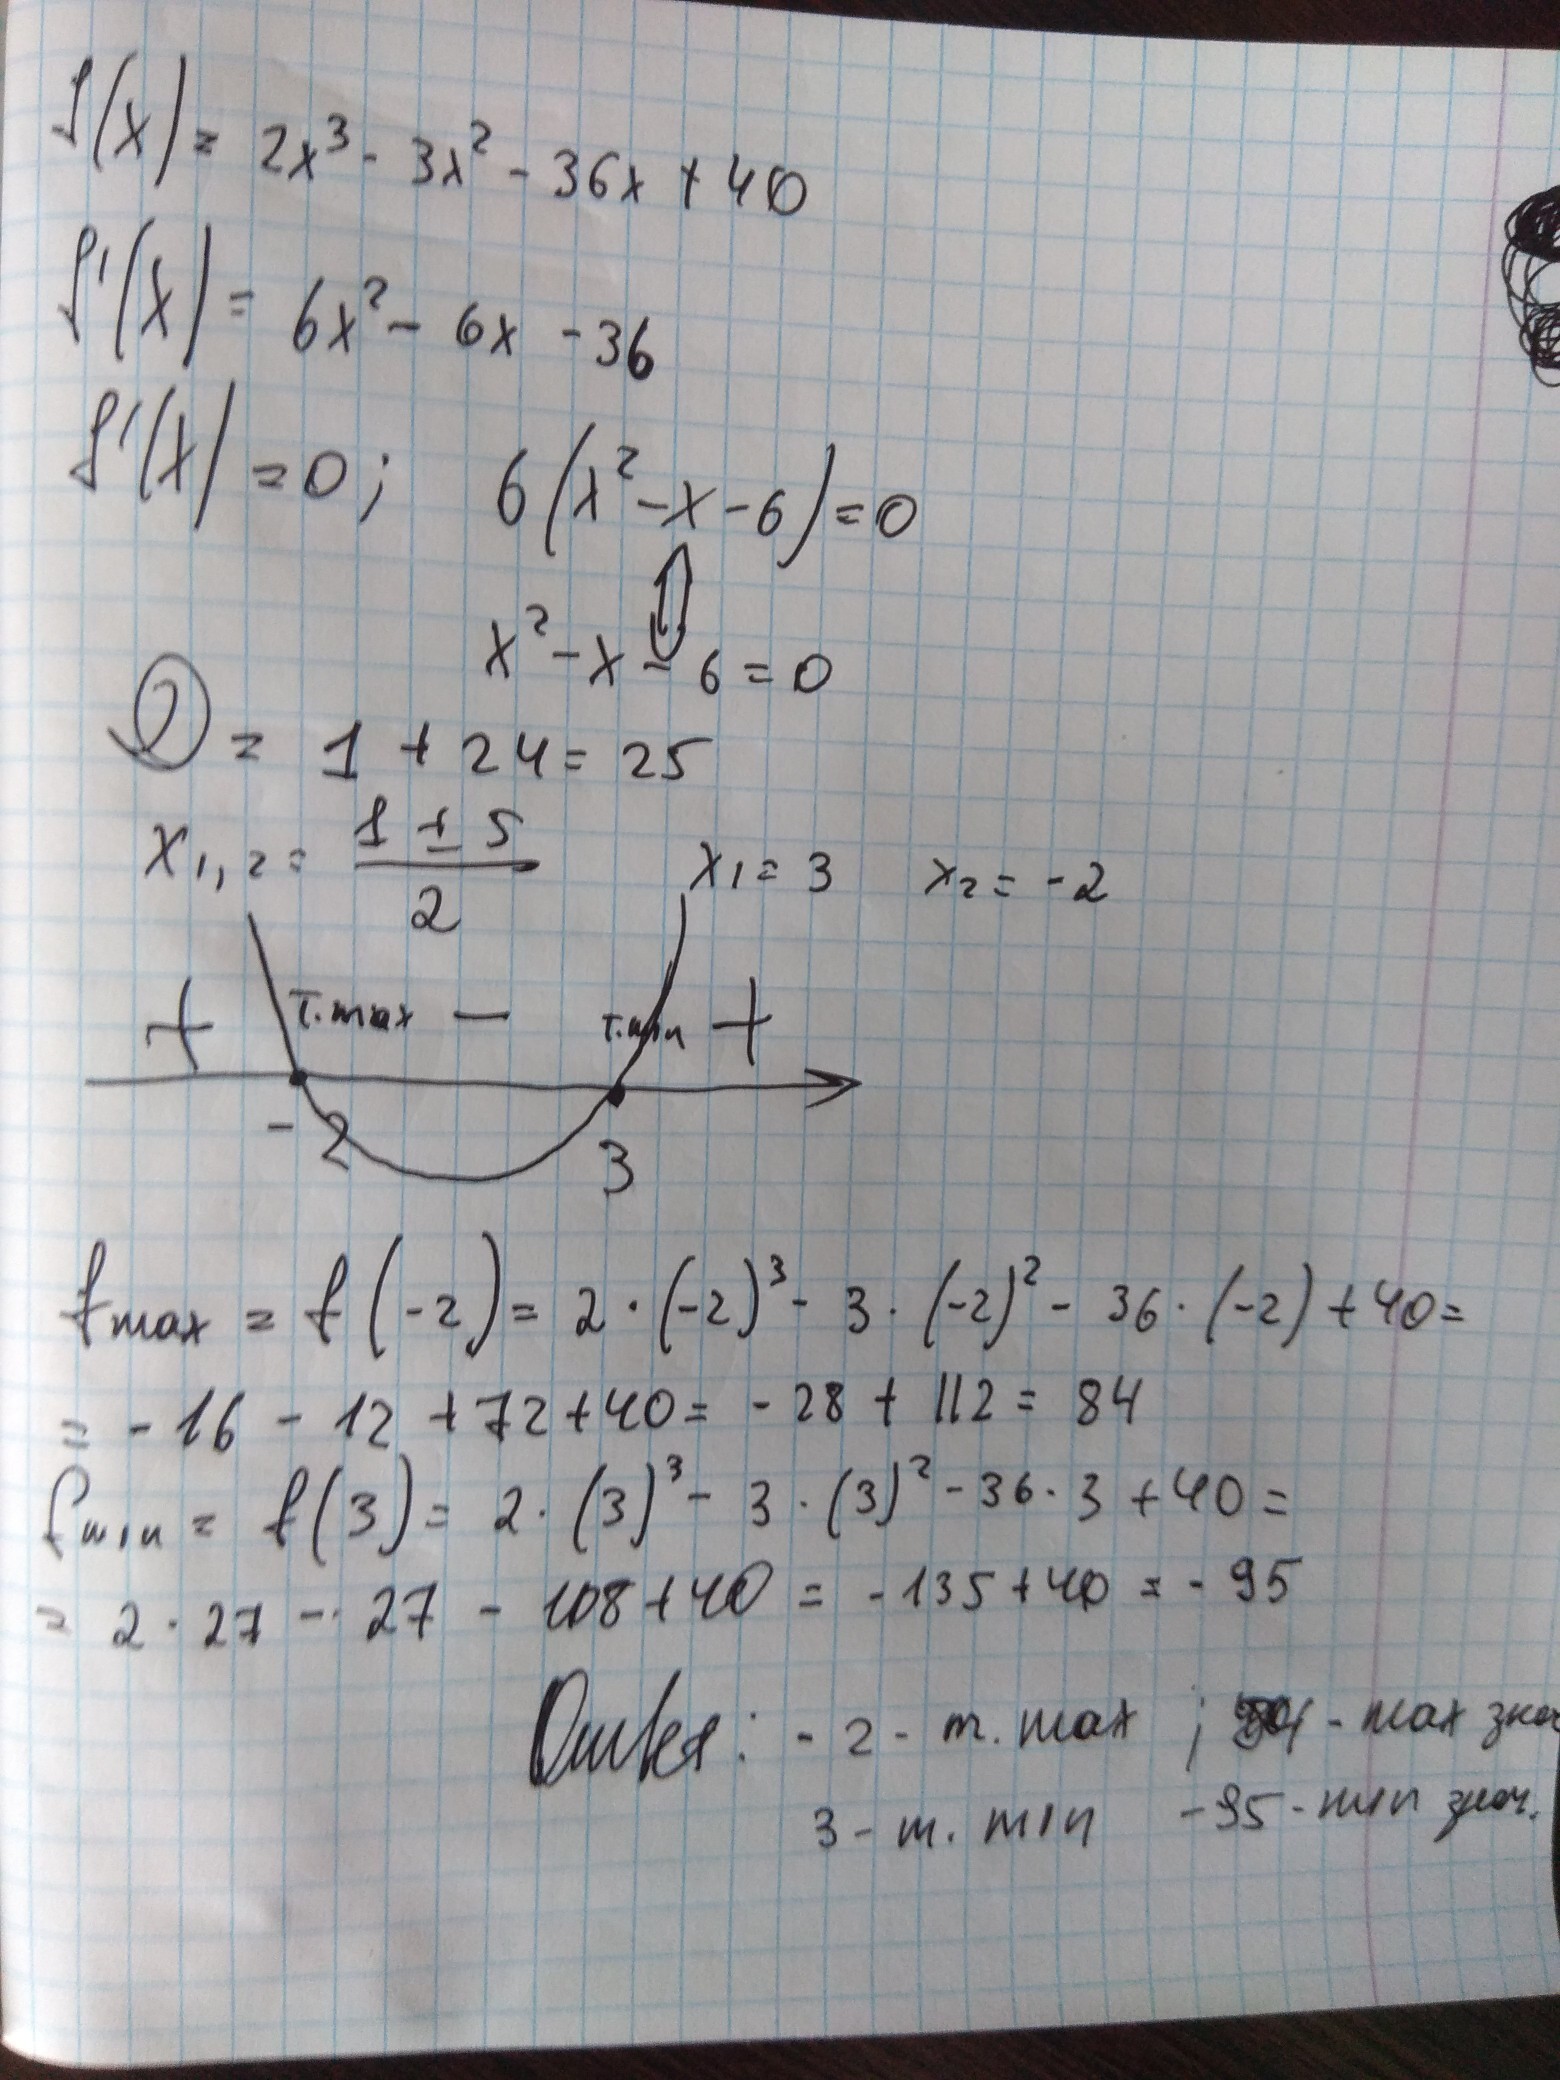 f(x) = 2x³ - 3x² - 36x + 40
f'(x) = 6x² - 6x - 36
f'(x) = 0; 6(x² - x - 6) = 0
x² - x - 6 = 0
D = 1 + 24 = 25
x₁,₂ = (1 ± 5)/2 x₁ = 3 x₂ = -2
+ т.max — т.min +
-2 3
fmax = f(-2) = 2·(-2)³ - 3·(-2)² - 36·(-2) + 40 =
= -16 - 12 + 72 + 40 = -28 + 112 = 84
fmin = f(3) = 2·(3)³ - 3·(3)² - 36·3 + 40 =
= 2·27 - 27 - 108 + 40 = -135 + 40 = -95
Ответ: -2 - т. max ; - max знач
3 - т. min -95 - min знач.